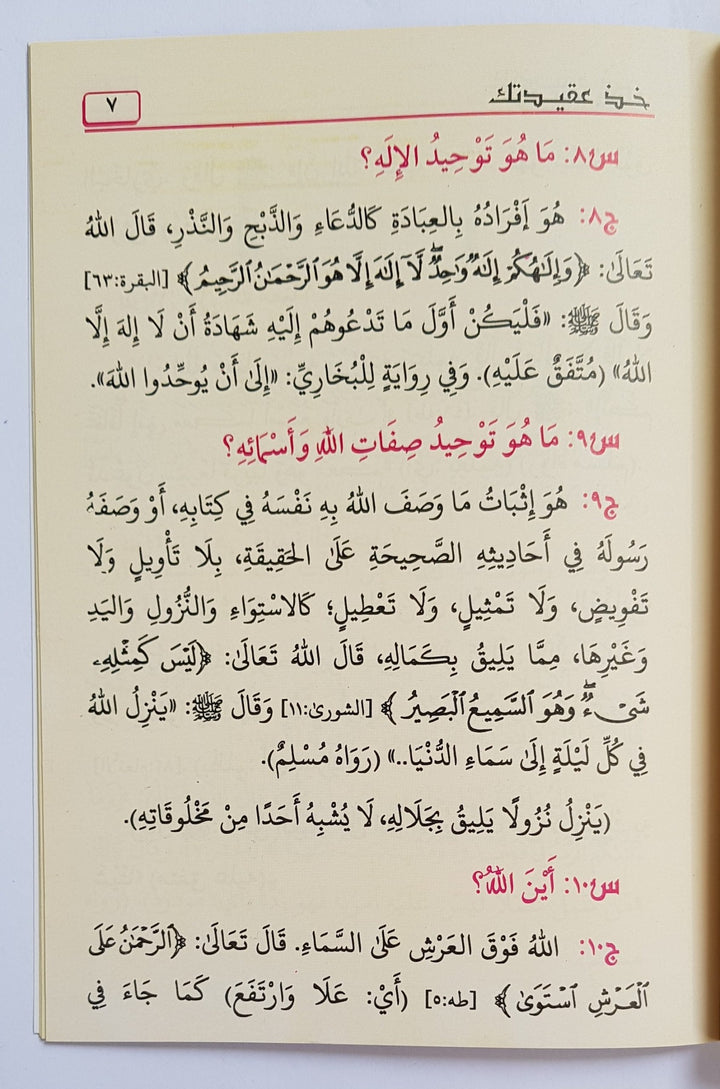 خذ عقيدتك
٧
س٨: مَا هُوَ تَوْحِيدُ الإِلَهِ؟
ج٨: هُوَ إِفْرَادُهُ بِالعِبَادَةِ كَالدُّعَاءِ وَالذَّبْحِ وَالنَّذْرِ، قَالَ اللهُ
تَعَالَىٰ: ﴿وَإِلَٰهُكُمْ إِلَٰهٌ وَٰحِدٌ ۖ لَّآ إِلَٰهَ إِلَّا هُوَ ٱلرَّحْمَٰنُ ٱلرَّحِيمُ﴾ [البقرة:٦٣]
وَقَالَ ﷺ: «فَلْيَكُنْ أَوَّلَ مَا تَدْعُوهُمْ إِلَيْهِ شَهَادَةُ أَنْ لَا إِلهَ إِلَّا
اللهُ» (مُتَّفَقٌ عَلَيْهِ). وَفِي رِوَايَةٍ لِلْبُخَارِيِّ: «إِلَىٰ أَنْ يُوحِّدُوا اللهَ».
س٩: مَا هُوَ تَوْحِيدُ صِفَاتِ اللهِ وَأَسْمَائِهِ؟
ج٩: هُوَ إِثْبَاتُ مَا وَصَفَ اللهُ بِهِ نَفْسَهُ فِي كِتَابِهِ، أَوْ وَصَفَهُ
رَسُولَهُ فِي أَحَادِيثِهِ الصَّحِيحَةِ عَلَىٰ الحَقِيقَةِ، بِلَا تَأْوِيلٍ وَلَا
تَفْوِيضٍ، وَلَا تَمْثِيلٍ، وَلَا تَعْطِيلٍ؛ كَالاسْتِوَاءِ وَالنُّزُولِ وَاليَدِ
وَغَيْرِهَا، مِمَّا يَلِيقُ بِكَمَالِهِ، قَالَ اللهُ تَعَالَىٰ: ﴿لَيْسَ كَمِثْلِهِۦ
شَىْءٌ ۖ وَهُوَ ٱلسَّمِيعُ ٱلْبَصِيرُ﴾ [الشورىٰ:١١] وَقَالَ ﷺ: «يَنْزِلُ اللهُ
فِي كُلِّ لَيْلَةٍ إِلَىٰ سَمَاءِ الدُّنْيَا..» (رَوَاهُ مُسْلِمٌ).
(يَنْزِلُ نُزُولًا يَلِيقُ بِجَلَالِهِ، لَا يُشْبِهُ أَحَدًا مِنْ مَخْلُوقَاتِهِ).
س١٠: أَيْنَ اللهُ؟
ج١٠: اللهُ فَوْقَ العَرْشِ عَلَىٰ السَّمَاءِ. قَالَ تَعَالَىٰ: ﴿ٱلرَّحْمَٰنُ عَلَى
ٱلْعَرْشِ ٱسْتَوَىٰ﴾ [طه:٥] (أَيْ: عَلَا وَارْتَفَعَ) كَمَا جَاءَ فِي